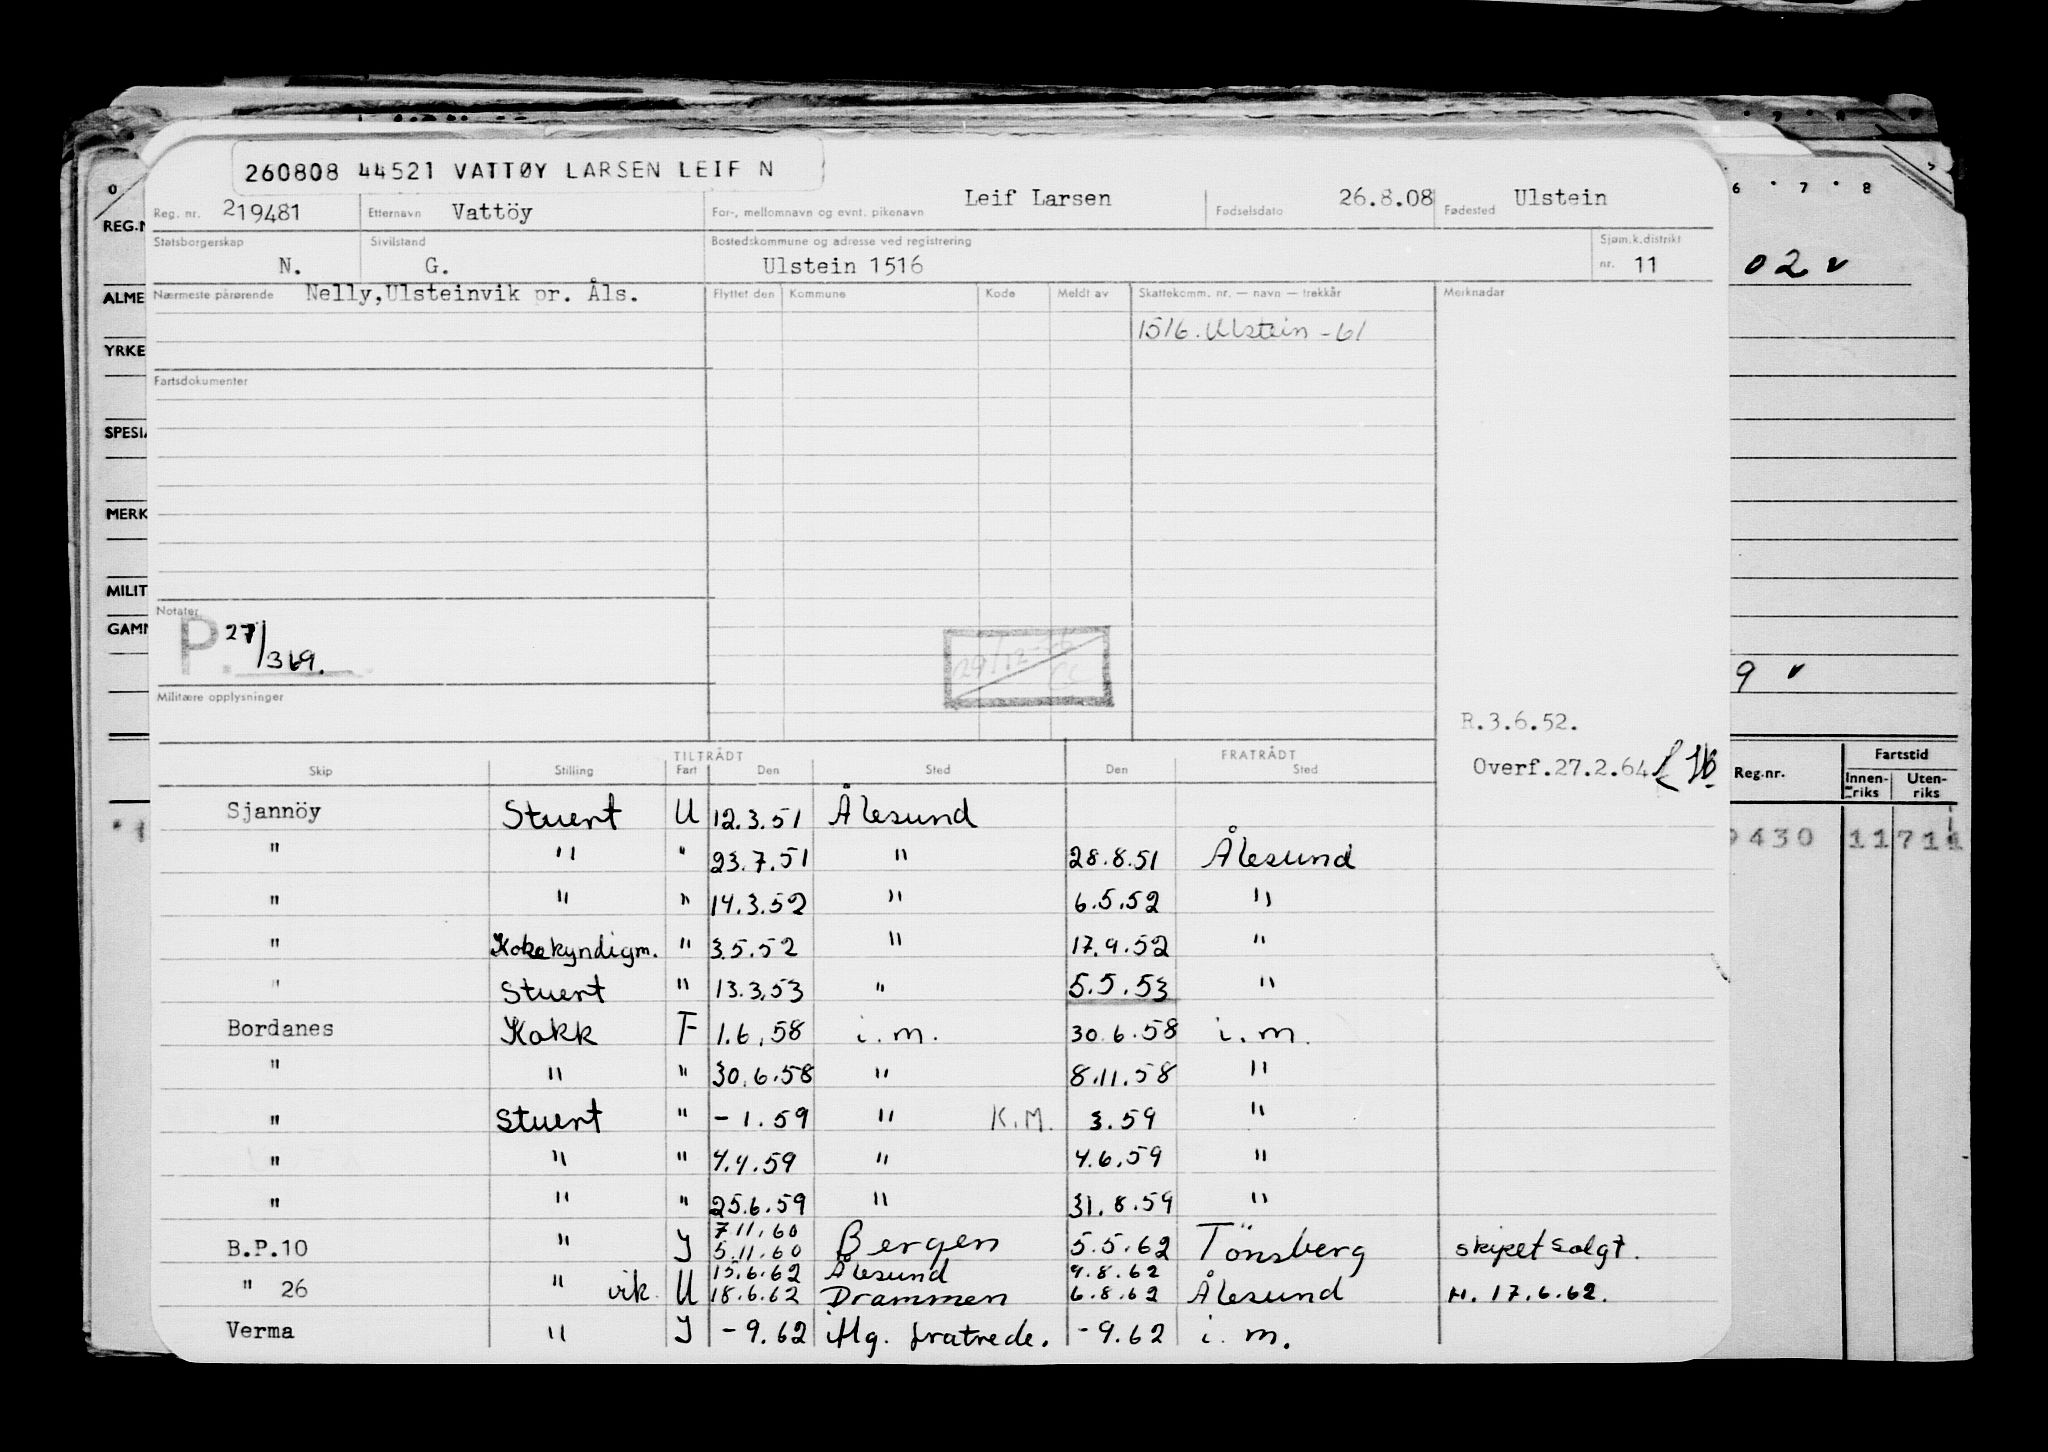 260808 44521 VATTØY LARSEN LEIF N
Reg. nr. 219481 Etternavn Vattöy For-, mellomnavn og evnt. pikenavn Leif Larsen Fødselsdato 26.8.08 Fødested Ulstein
Statsborgerskap N. Sivilstand G. Bostedskommune og adresse ved registrering Ulstein 1516 Sjøm.k.distrikt nr. 11
Nærmeste pårørende Nelly,Ulsteinvik pr. Åls. Flyttet den Kommune Kode Meldt av Skattekomm. nr. — navn — trekkår Merknader
1516. Ulstein -61
Fartsdokumenter
Notater
P. 27/369.
29/12-
Militære opplysninger
R.3.6.52.
Overf.27.2.64
TILTRÅDT FRATRÅDT
Skip Stilling Fart Den Sted Den Sted
Sjannöy Stuert U 12.3.51 Ålesund
" " " 23.7.51 " 28.8.51 Ålesund
" " " 14.3.52 " 6.5.52 "
" Kokekyndigm. " 3.5.52 " 17.9.52 "
" Stuert " 13.3.53 " 5.5.53 "
Bordanes Kokk F 1.6.58 i.m. 30.6.58 i.m.
" " " 30.6.58 " 8.11.58 "
" Stuert " - 1.59 " K.M. 3.59 "
" " " 4.4.59 " 4.6.59 "
" " " 25.6.59 " 31.8.59 "
7.11.60
B.P.10 " J 5.11.60 Bergen 5.5.62 Tönsberg skipet solgt.
15.6.62 Ålesund 9.8.62
" 26 " vik U 18.6.62 Drammen 6.8.62 Ålesund H. 17.6.62.
Verma " J -9.62 iflg. fratrede. -9.62 i.m.
REG.N
ALME
YRKE
SPESIA
MERK
MILIT
GAMM
0
6 7 8
02 v
9 v
Reg.nr. Fartstid
Innen-riks Uten-riks
9430 11 711